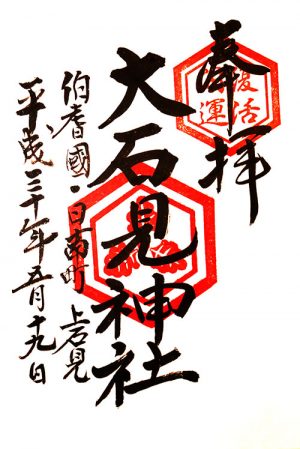 奉拝
復活
運
大石見神社
伯耆國・日南町 上石見
平成三十年五月十九日